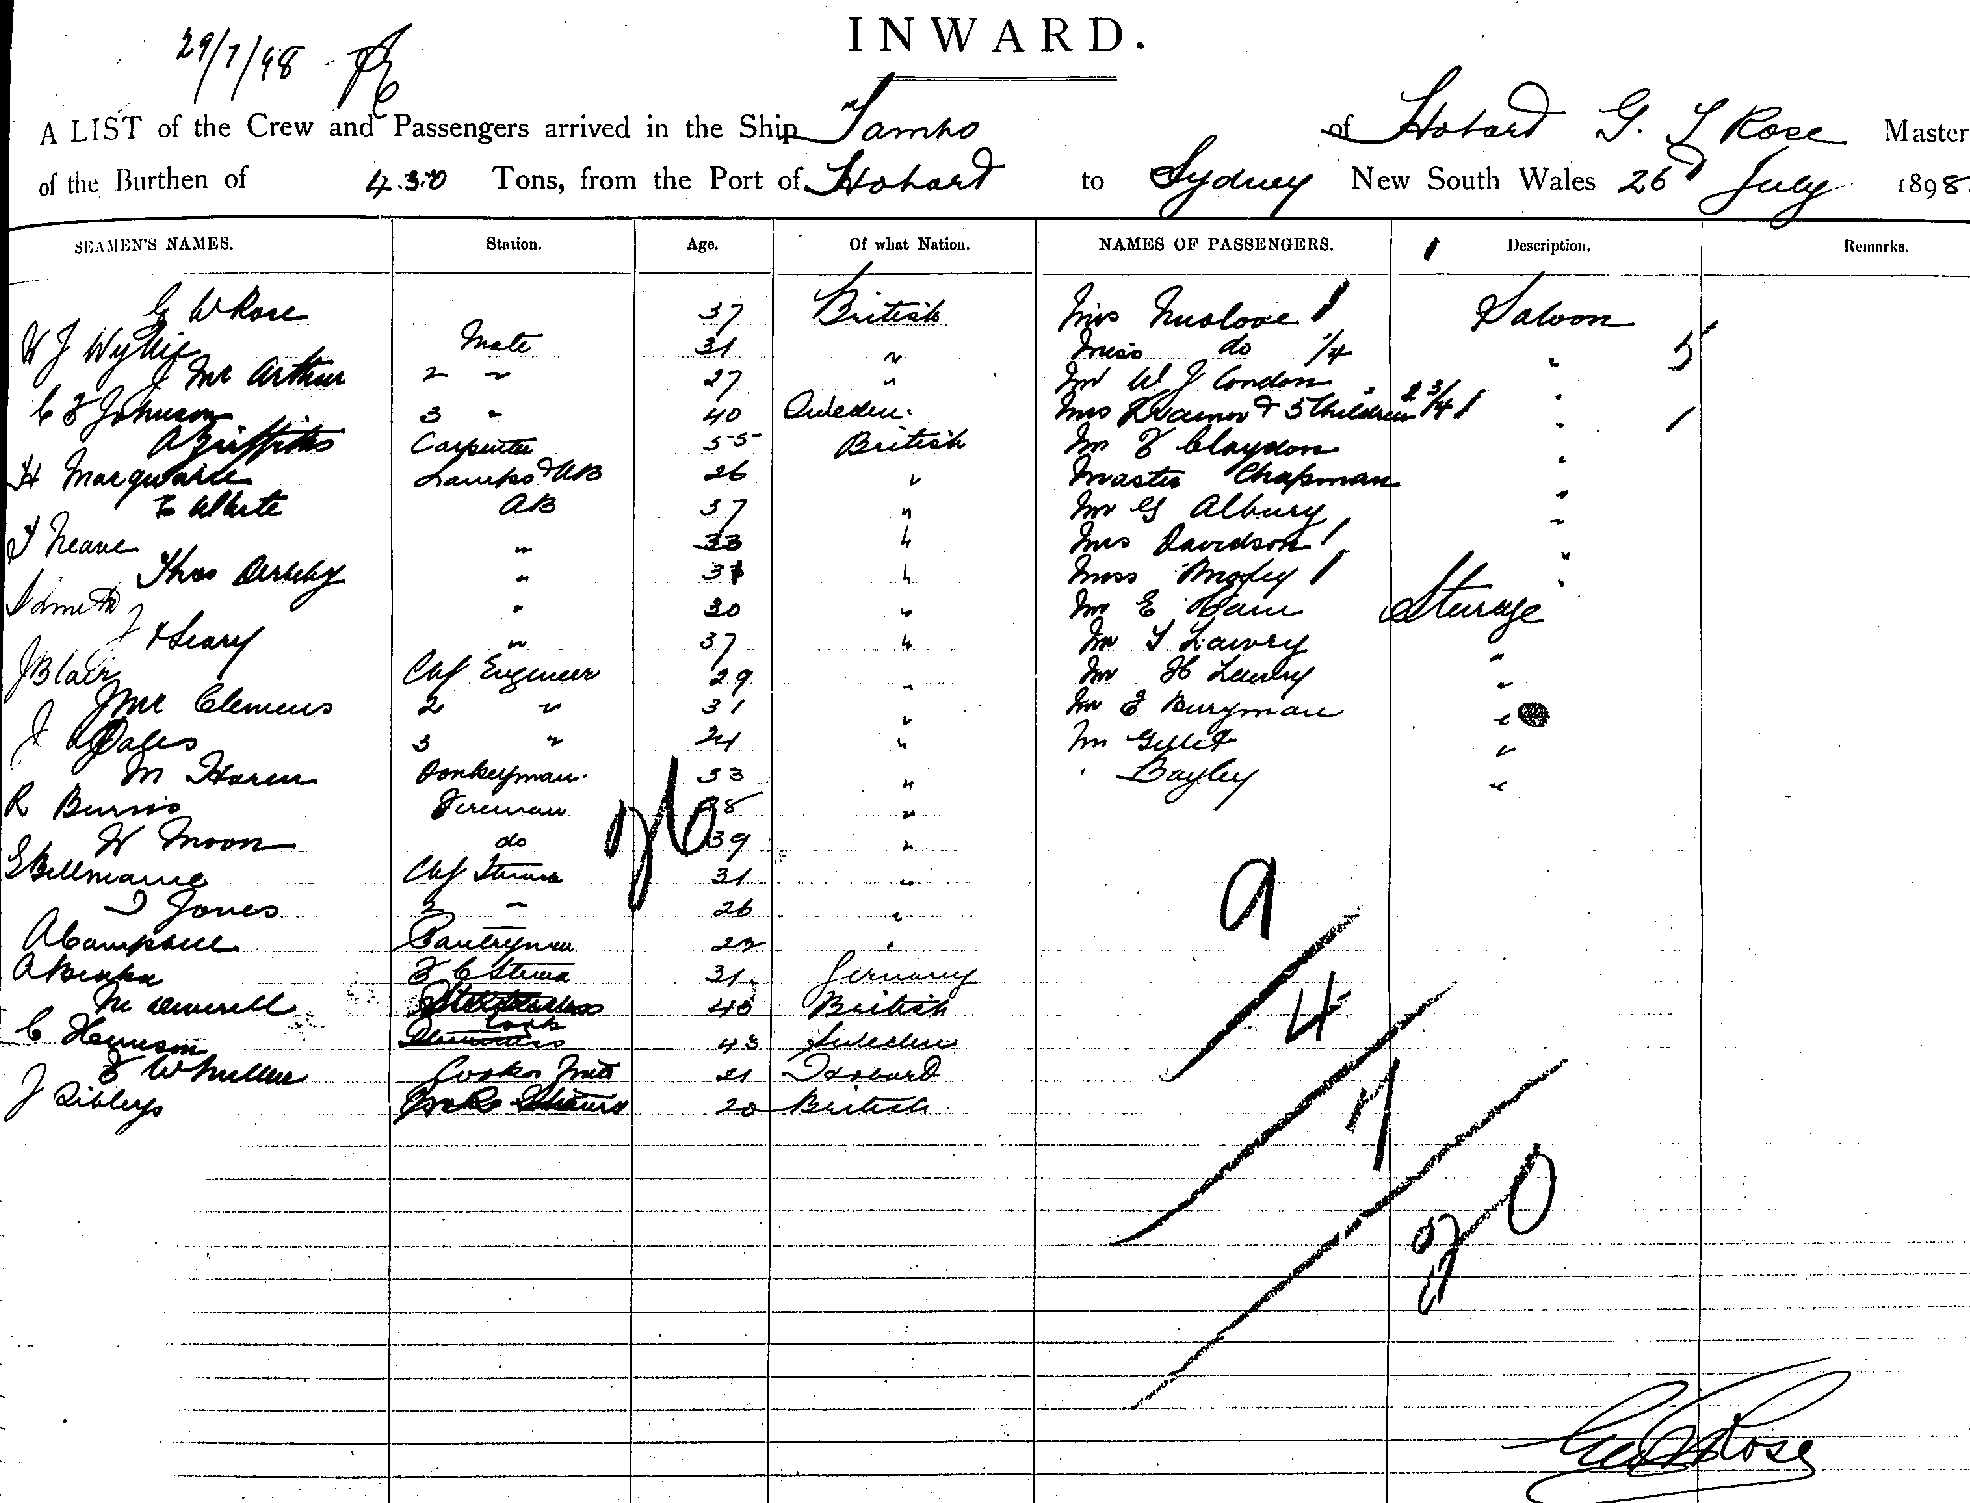 INWARD.
29/7/98
A LIST of the Crew and Passengers arrived in the Ship Tambo of Hobart G. Rose Master
of the Burthen of 430 Tons, from the Port of Hobart to Sydney New South Wales 26 July 1898.
SEAMEN'S NAMES. Station. Age. Of what Nation. NAMES OF PASSENGERS. Description. Remarks.
G W Rose 37 British Mrs 1 Saloon
W J Wyllie Mate 31 " Miss do 1/4 " 5
J Mc Arthur 2 " 27 " Mr W J Condon "
C F Johnson 3 " 40 Sweden. Mrs & 5 Children 2 3/4 1 " 1
A Griffiths Carpenter 55 British Mr F Claydon "
H Lamps & AB 26 " Master Chapman "
E White AB 37 " Mr G Albury "
T Neave " 33 " Mrs Davidson 1 "
Thos " 31 " Miss 1 "
J Smith " 30 " Mr E Steerage
J 37 " Mr T Lawry "
J Blair Chf Engineer 29 " Mr H Lawry "
J Mc Clemens 2 " 31 " Mr E Burgman "
J Oates 3 " 24 " Mr Gillet "
M Haren Donkeyman. 33 " Bayley "
R Burns Fireman 38 "
W Moon do 39 "
Chf 31 "
T Jones 2 " 26 "
A Campbell Pantryman 22 "
A F C 31 Germany
M 40 British
C Cook 43 Sweden
F Cooks Mate 21
J Sibleys 20 British.
26
9
4
7
20
Geo W Rose